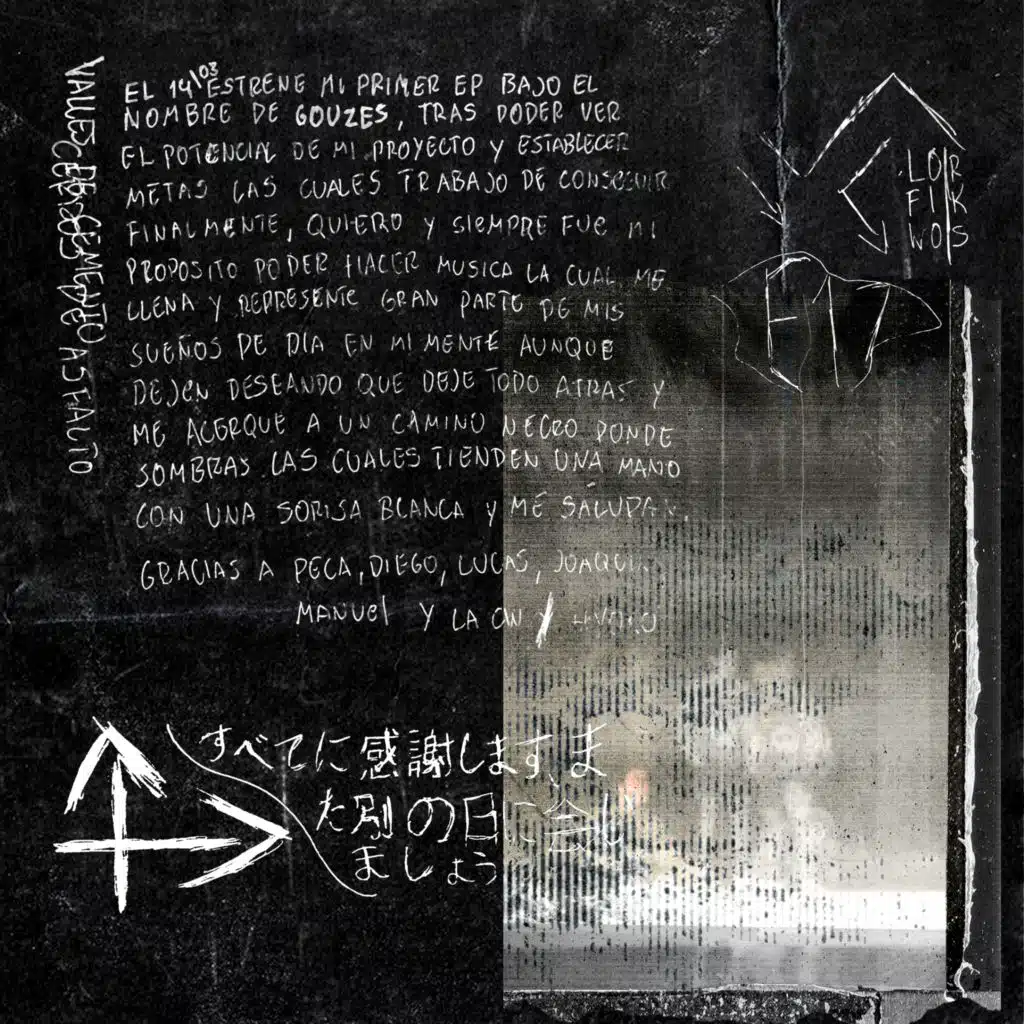 EL 14\03 ESTRENE MI PRIMER EP BAJO EL
NOMBRE DE GOUZES, TRAS PODER VER
EL POTENCIAL DE MI PROYECTO Y ESTABLECER
METAS LAS CUALES TRABAJO DE CONSEGUIR
FINALMENTE, QUIERO Y SIEMPRE FUE MI
PROPOSITO PODER HACER MUSICA LA CUAL ME
LLENA Y REPRESENTE GRAN PARTE DE MIS
SUEÑOS DE DIA EN MI MENTE AUNQUE
DEJEN DESEANDO QUE DEJE TODO ATRAS Y
ME ACERQUE A UN CAMINO NEGRO DONDE
SOMBRAS LAS CUALES TIENDEN UNA MANO
CON UNA SORISA BLANCA Y ME SALUDAN.
GRACIAS A PECA, DIEGO, LUCAS, JOAQUIN
MANUEL Y LA CW Y
VALLES DE CEMENTO
CERROS DE ASFALTO
LOR
FIK
WOS
F17
すべてに感謝します、ま
た別の日に会い
ましょう